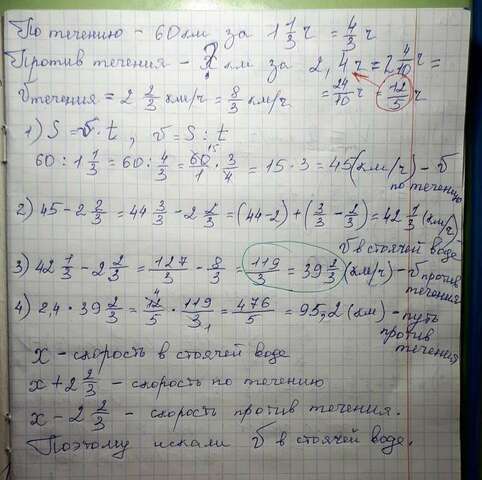 По течению - 60 км за 1 1/3 ч = 4/3 ч
Против течения - ? км за 2,4 ч = 2 4/10 ч =
v течения = 2 2/3 км/ч = 8/3 км/ч = 24/10 = 12/5 ч
1) S = v · t, v = S : t
60 : 1 1/3 = 60 : 4/3 = 60/1 · 3/4 = 15 · 3 = 45 (км/ч) - v
15
по течению
2) 45 - 2 2/3 = 44 3/3 - 2 2/3 = (44-2) + (3/3 - 2/3) = 42 1/3 (км/ч)
v в стоячей воде
3) 42 1/3 - 2 2/3 = 127/3 - 8/3 = 119/3 = 39 2/3 (км/ч) - v против
течения
4) 2,4 · 39 2/3 = 12/5 · 119/3 = 476/5 = 95,2 (км) - путь
4
1
против
течения
x - скорость в стоячей воде
x + 2 2/3 - скорость по течению
x - 2 2/3 - скорость против течения.
Поэтому искали v в стоячей воде.